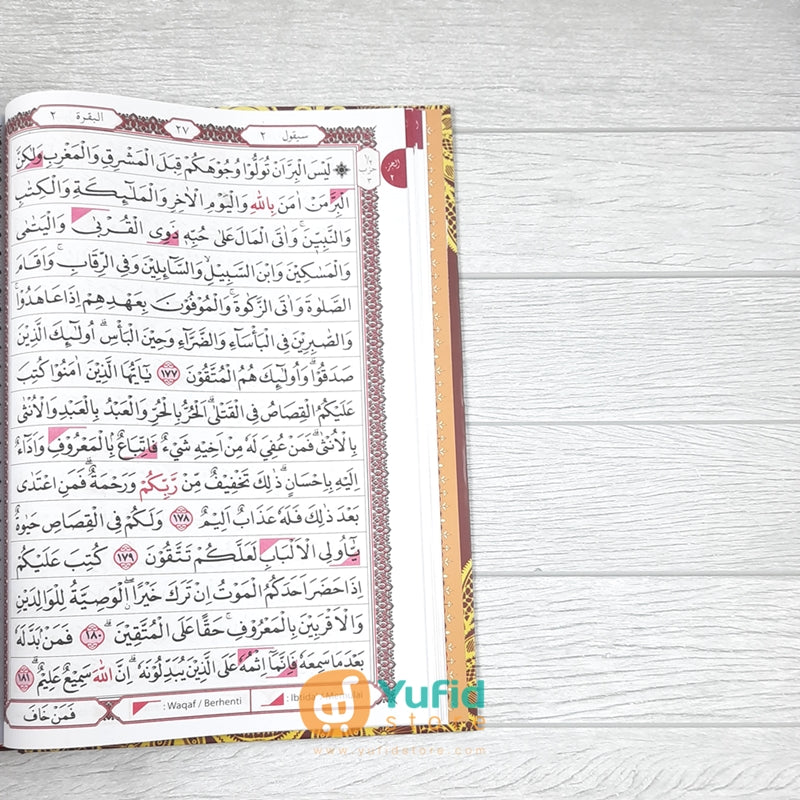 البقرة ٢
٢٧
سيقول ٢
الجزء
٢
لَيْسَ الْبِرَّ اَنْ تُوَلُّوْا وُجُوْهَكُمْ قِبَلَ الْمَشْرِقِ وَالْمَغْرِبِ وَلٰكِنَّ
الْبِرَّ مَنْ اٰمَنَ بِاللّٰهِ وَالْيَوْمِ الْاٰخِرِ وَالْمَلٰۤىِٕكَةِ وَالْكِتٰبِ
وَالنَّبِيّٖنَۚ وَاٰتَى الْمَالَ عَلٰى حُبِّهٖ ذَوِى الْقُرْبٰى وَالْيَتٰمٰى
وَالْمَسٰكِيْنَ وَابْنَ السَّبِيْلِۙ وَالسَّاۤىِٕلِيْنَ وَفِى الرِّقَابِۚ وَاَقَامَ
الصَّلٰوةَ وَاٰتَى الزَّكٰوةَۚ وَالْمُوْفُوْنَ بِعَهْدِهِمْ اِذَا عَاهَدُوْاۚ
وَالصّٰبِرِيْنَ فِى الْبَأْسَاۤءِ وَالضَّرَّاۤءِ وَحِيْنَ الْبَأْسِۗ اُولٰۤىِٕكَ الَّذِيْنَ
صَدَقُوْاۗ وَاُولٰۤىِٕكَ هُمُ الْمُتَّقُوْنَ ١٧٧ يٰٓاَيُّهَا الَّذِيْنَ اٰمَنُوْا كُتِبَ
عَلَيْكُمُ الْقِصَاصُ فِى الْقَتْلٰىۗ اَلْحُرُّ بِالْحُرِّ وَالْعَبْدُ بِالْعَبْدِ وَالْاُنْثٰى
بِالْاُنْثٰىۗ فَمَنْ عُفِيَ لَهٗ مِنْ اَخِيْهِ شَيْءٌ فَاتِّبَاعٌۢ بِالْمَعْرُوْفِ وَاَدَاۤءٌ
اِلَيْهِ بِاِحْسَانٍۗ ذٰلِكَ تَخْفِيْفٌ مِّنْ رَّبِّكُمْ وَرَحْمَةٌۗ فَمَنِ اعْتَدٰى
بَعْدَ ذٰلِكَ فَلَهٗ عَذَابٌ اَلِيْمٌ ١٧٨ وَلَكُمْ فِى الْقِصَاصِ حَيٰوةٌ
يّٰٓاُولِى الْاَلْبَابِ لَعَلَّكُمْ تَتَّقُوْنَ ١٧٩ كُتِبَ عَلَيْكُمْ
اِذَا حَضَرَ اَحَدَكُمُ الْمَوْتُ اِنْ تَرَكَ خَيْرًاۖ اۨلْوَصِيَّةُ لِلْوَالِدَيْنِ
وَالْاَقْرَبِيْنَ بِالْمَعْرُوْفِۚ حَقًّا عَلَى الْمُتَّقِيْنَۗ ١٨٠ فَمَنْۢ بَدَّلَهٗ
بَعْدَمَا سَمِعَهٗ فَاِنَّمَآ اِثْمُهٗ عَلَى الَّذِيْنَ يُبَدِّلُوْنَهٗۗ اِنَّ اللّٰهَ سَمِيْعٌ عَلِيْمٌۗ ١٨١
فَمَنْ خَافَ
: Waqaf / Berhenti
Yufid
store
www.yufidstore.com